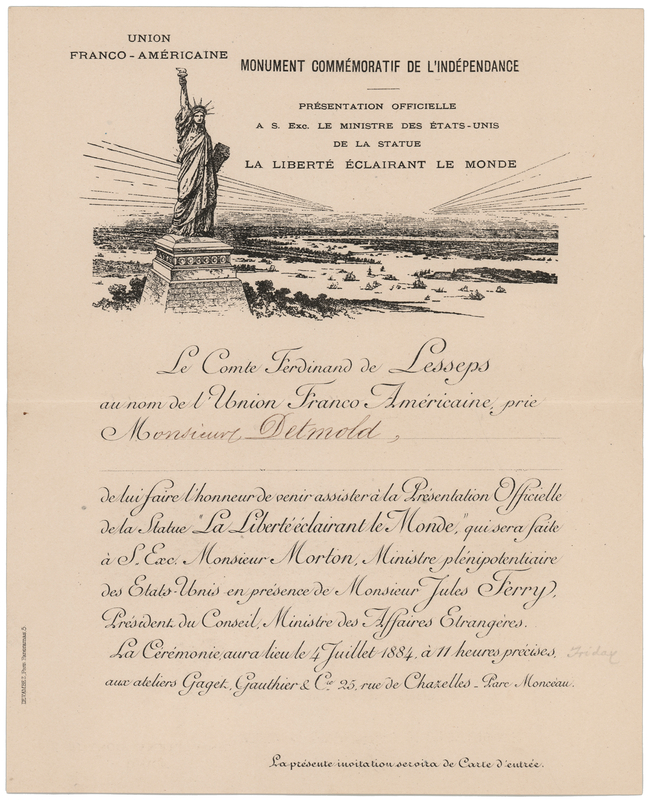 UNION
FRANCO-AMÉRICAINE
MONUMENT COMMÉMORATIF DE L'INDÉPENDANCE
PRÉSENTATION OFFICIELLE
A S. Exc. LE MINISTRE DES ÉTATS-UNIS
DE LA STATUE
LA LIBERTÉ ÉCLAIRANT LE MONDE
Le Comte Ferdinand de Lesseps
au nom de l'Union Franco-Américaine, prie
Monsieur Detmold,
de lui faire l'honneur de venir assister à la Présentation Officielle
de la Statue "La Liberté éclairant le Monde," qui sera faite
à S. Exc. Monsieur Morton, Ministre plénipotentiaire
des Etats-Unis en présence de Monsieur Jules Ferry,
Président du Conseil, Ministre des Affaires Etrangères.
La Cérémonie aura lieu le 4 Juillet 1884, à 11 heures précises, Friday
aux ateliers Gaget, Gauthier & Cie 25, rue de Chazelles - Parc Monceau.
La présente invitation servira de Carte d'entrée.